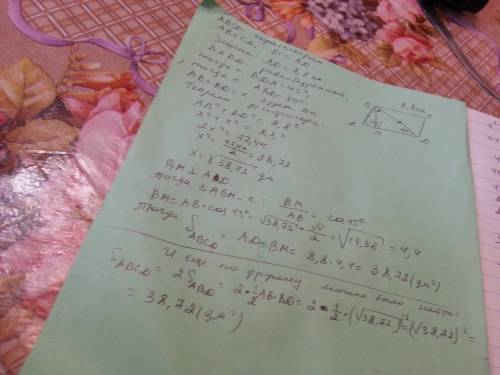 ABCD параллелограм
AB=CD, BC=AD
Значит AD=8,8 дм
ΔABD - равнобедренный.
тогда ∠BDA=45°,
тогда ∠ABD=90°
AB=BD=x
Теорема Пифагора:
AB²+BD²=8,8²
x²+x²=8,8²
2x²=77,44
x²=77,44/2=38,72
x=√38,72 дм
BM⊥AD.
тогда ΔABM-е: BM/AB=cos45°
BM=AB·cos45°=√38,72·√2/2=√19,36=4,4
Тогда
S ABCD=AD·BM=8,8·4,4=38,72(дм²)
И еще по другому можно было найти:
S ABCD=2S ABD=2·1/2AB·BD=2·1/2·(√38,72)²=(√38,72)²=
=38,72(дм²)
B 8,8дм C
A M D